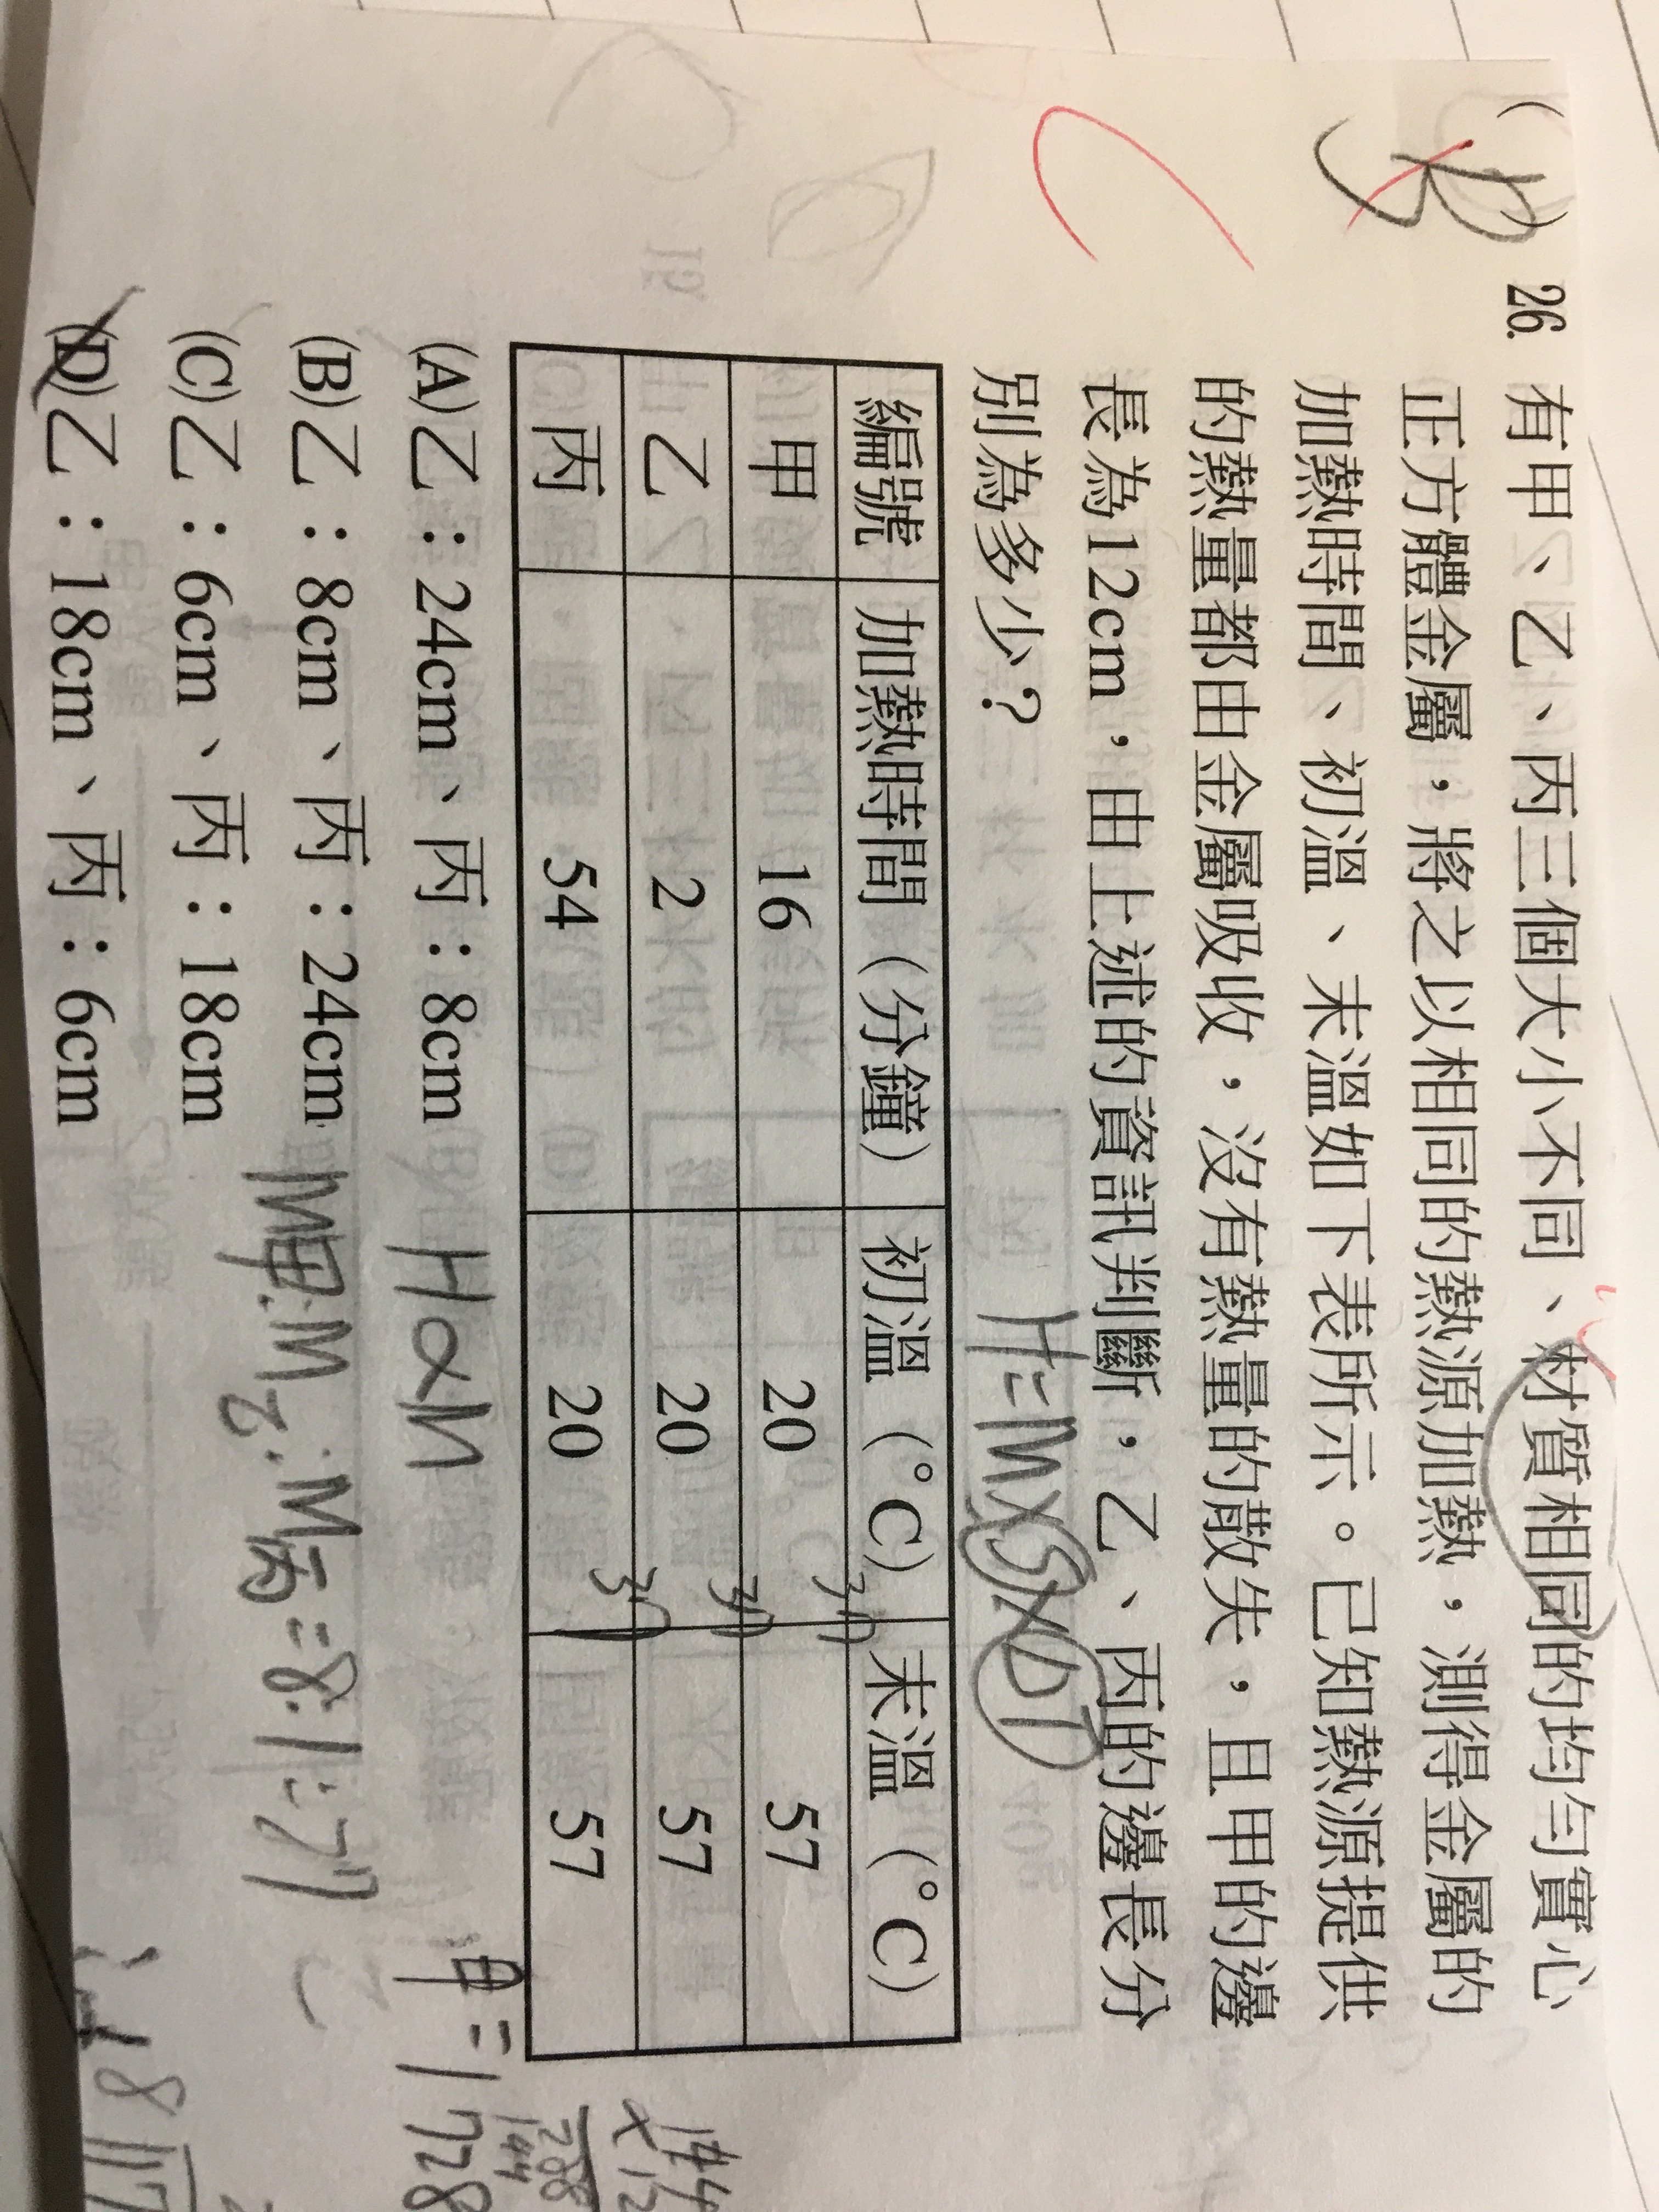 ( B ) 26. 有甲、乙、丙三個大小不同、材質相同的均勻實心
正方體金屬，將之以相同的熱源加熱，測得金屬的
加熱時間、初溫、末溫如下表所示。已知熱源提供
的熱量都由金屬吸收，沒有熱量的散失，且甲的邊
長為12cm，由上述的資訊判斷，乙、丙的邊長分
別為多少？
H=M×S×DT
編號 加熱時間（分鐘） 初溫（°C） 末溫（°C）
甲 16 20 37 57
乙 2 20 37 57
丙 54 20 37 57
(A)乙：24cm、丙：8cm
(B)乙：8cm、丙：24cm
(C)乙：6cm、丙：18cm
(D)乙：18cm、丙：6cm
H∝M
M甲:M乙:M丙=8:1:27
甲=1728
144
×12
288
144